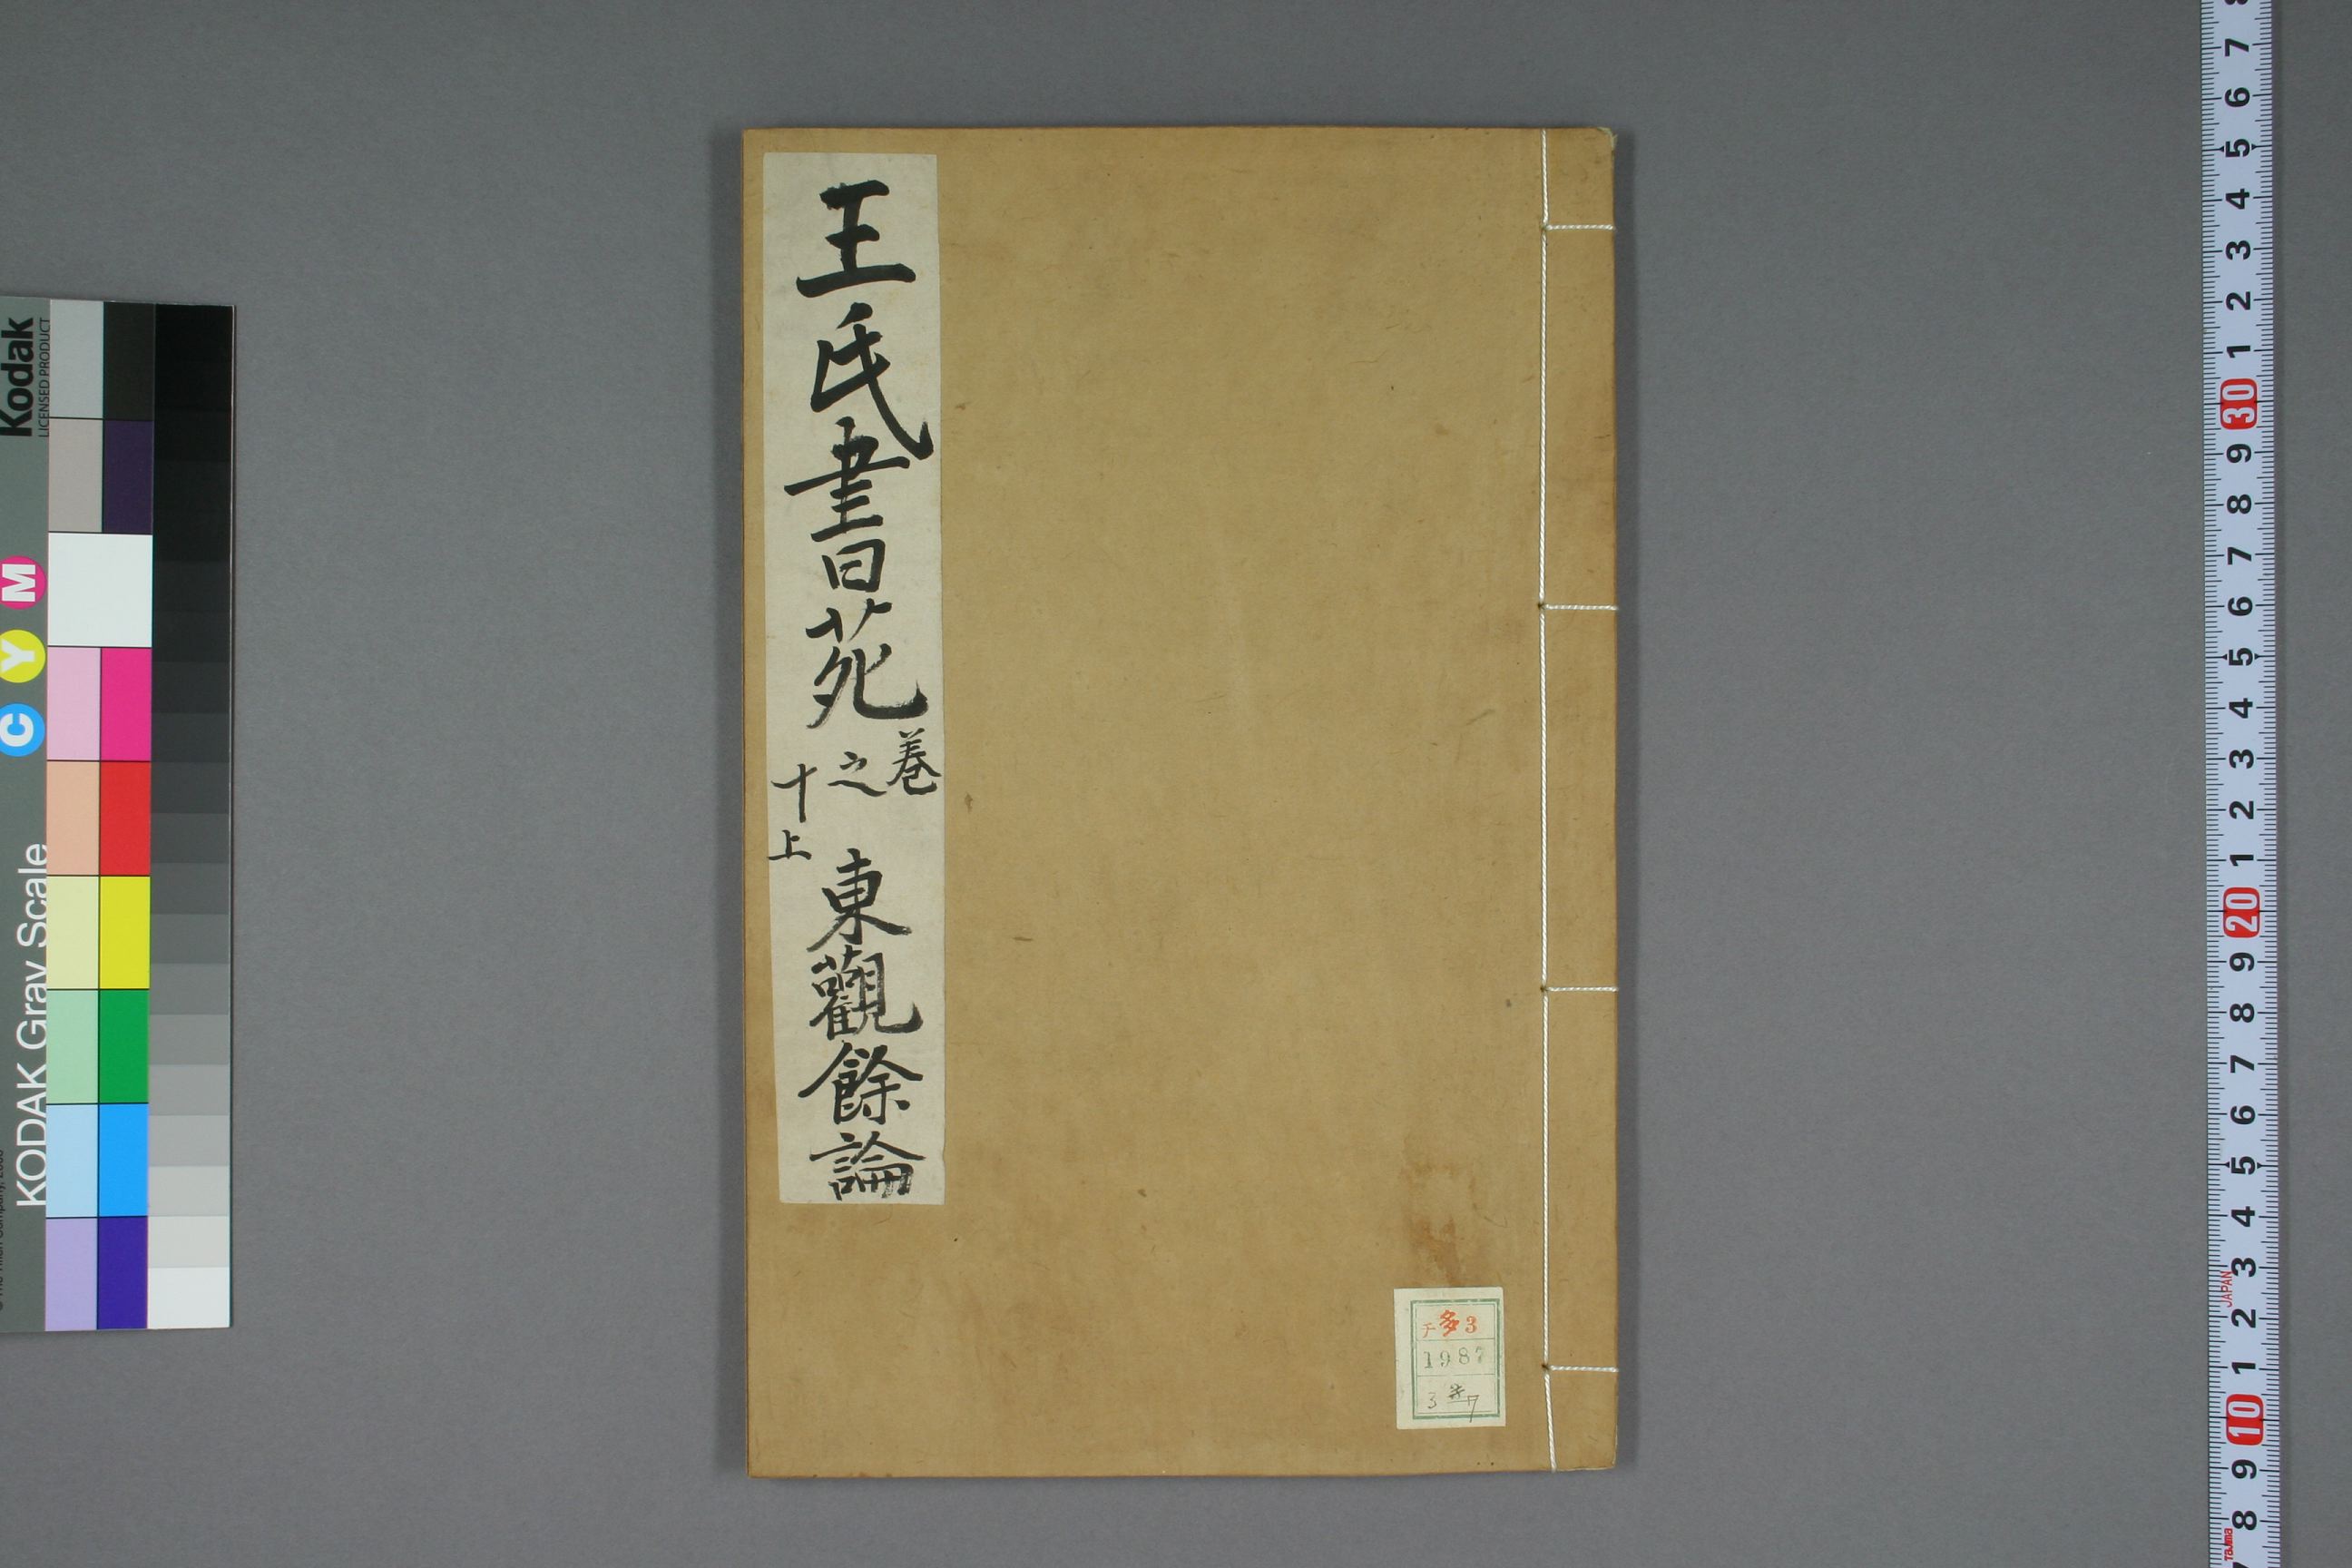 王氏書苑
卷之十上
東觀餘論
チ多3
1987
3 7
Kodak
LICENSED PRODUCT
KODAK Gray Scale
C Y M
8
7
6
5
4
3
2
1
30
9
8
7
6
5
4
3
2
1
20
9
8
7
6
5
4
3
JAPAN
2
1
10
9
8
Tajima